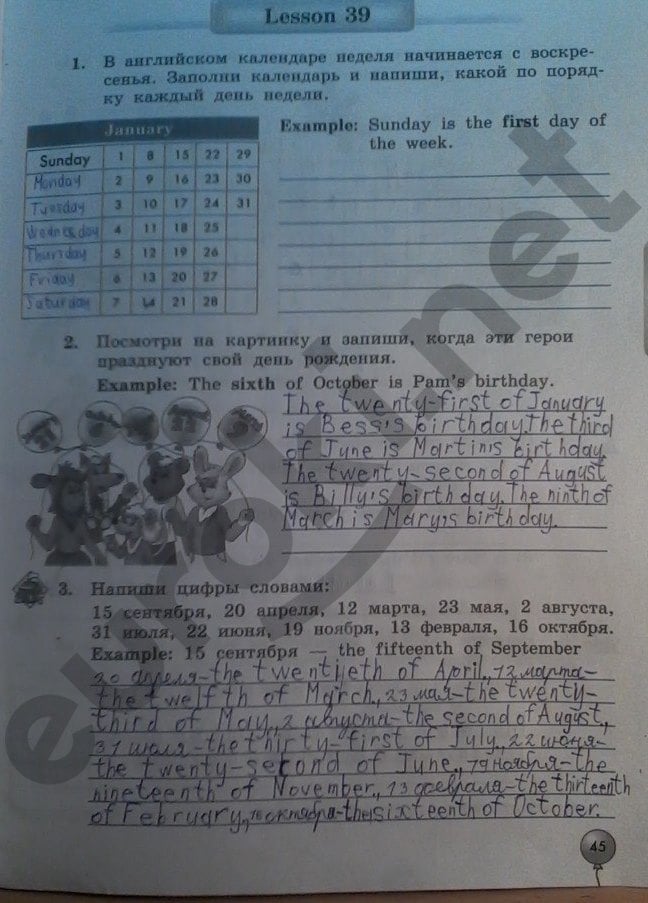 Lesson 39
1. В английском календаре неделя начинается с воскре-
сенья. Заполни календарь и напиши, какой по поряд-
ку каждый день недели.
January
Sunday 1 8 15 22 29
Monday 2 9 16 23 30
Tuesday 3 10 17 24 31
Wednesday 4 11 18 25
Thursday 5 12 19 26
Friday 6 13 20 27
Saturday 7 14 21 28
Example: Sunday is the first day of
the week.
2. Посмотри на картинку и запиши, когда эти герои
празднуют свой день рождения.
Example: The sixth of October is Pam's birthday.
The twenty-first of January
is Bess's birthday. The third
of June is Martin's birthday.
The twenty-second of August
is Billy's birthday. The ninth of
March is Mary's birthday.
3. Напиши цифры словами:
15 сентября, 20 апреля, 12 марта, 23 мая, 2 августа,
31 июля, 22 июня, 19 ноября, 13 февраля, 16 октября.
Example: 15 сентября — the fifteenth of September
20 апреля-the twentieth of April,, 12 марта-
the twelfth of March,, 23 мая-the twenty-
third of May,, 2 августа-the second of August,,
31 июля-the thirty-first of July,, 22 июня-
the twenty-second of June,, 19 ноября-the
nineteenth of November,, 13 февраля-the thirteenth
of February,, 16 октября-the sixteenth of October.
45